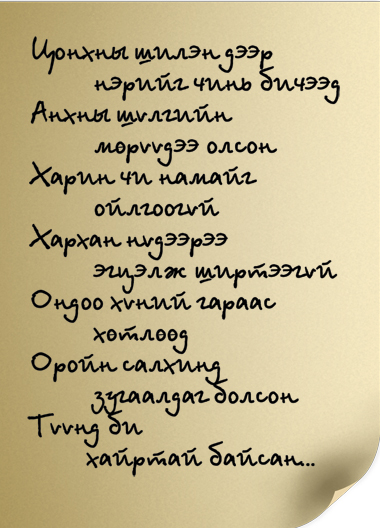 Цонхны шилэн дээр
нэрийг чинь бичээд
Анхны шvлгийн
мөрvvдээ олсон
Харин чи намайг
ойлгоогvй
Хархан нvдээрээ
эгцэлж ширтээгvй
Ондоо хvний гараас
хөтлөөд
Оройн салхинд
зугаалдаг болсон
Тvvнд би
хайртай байсан...